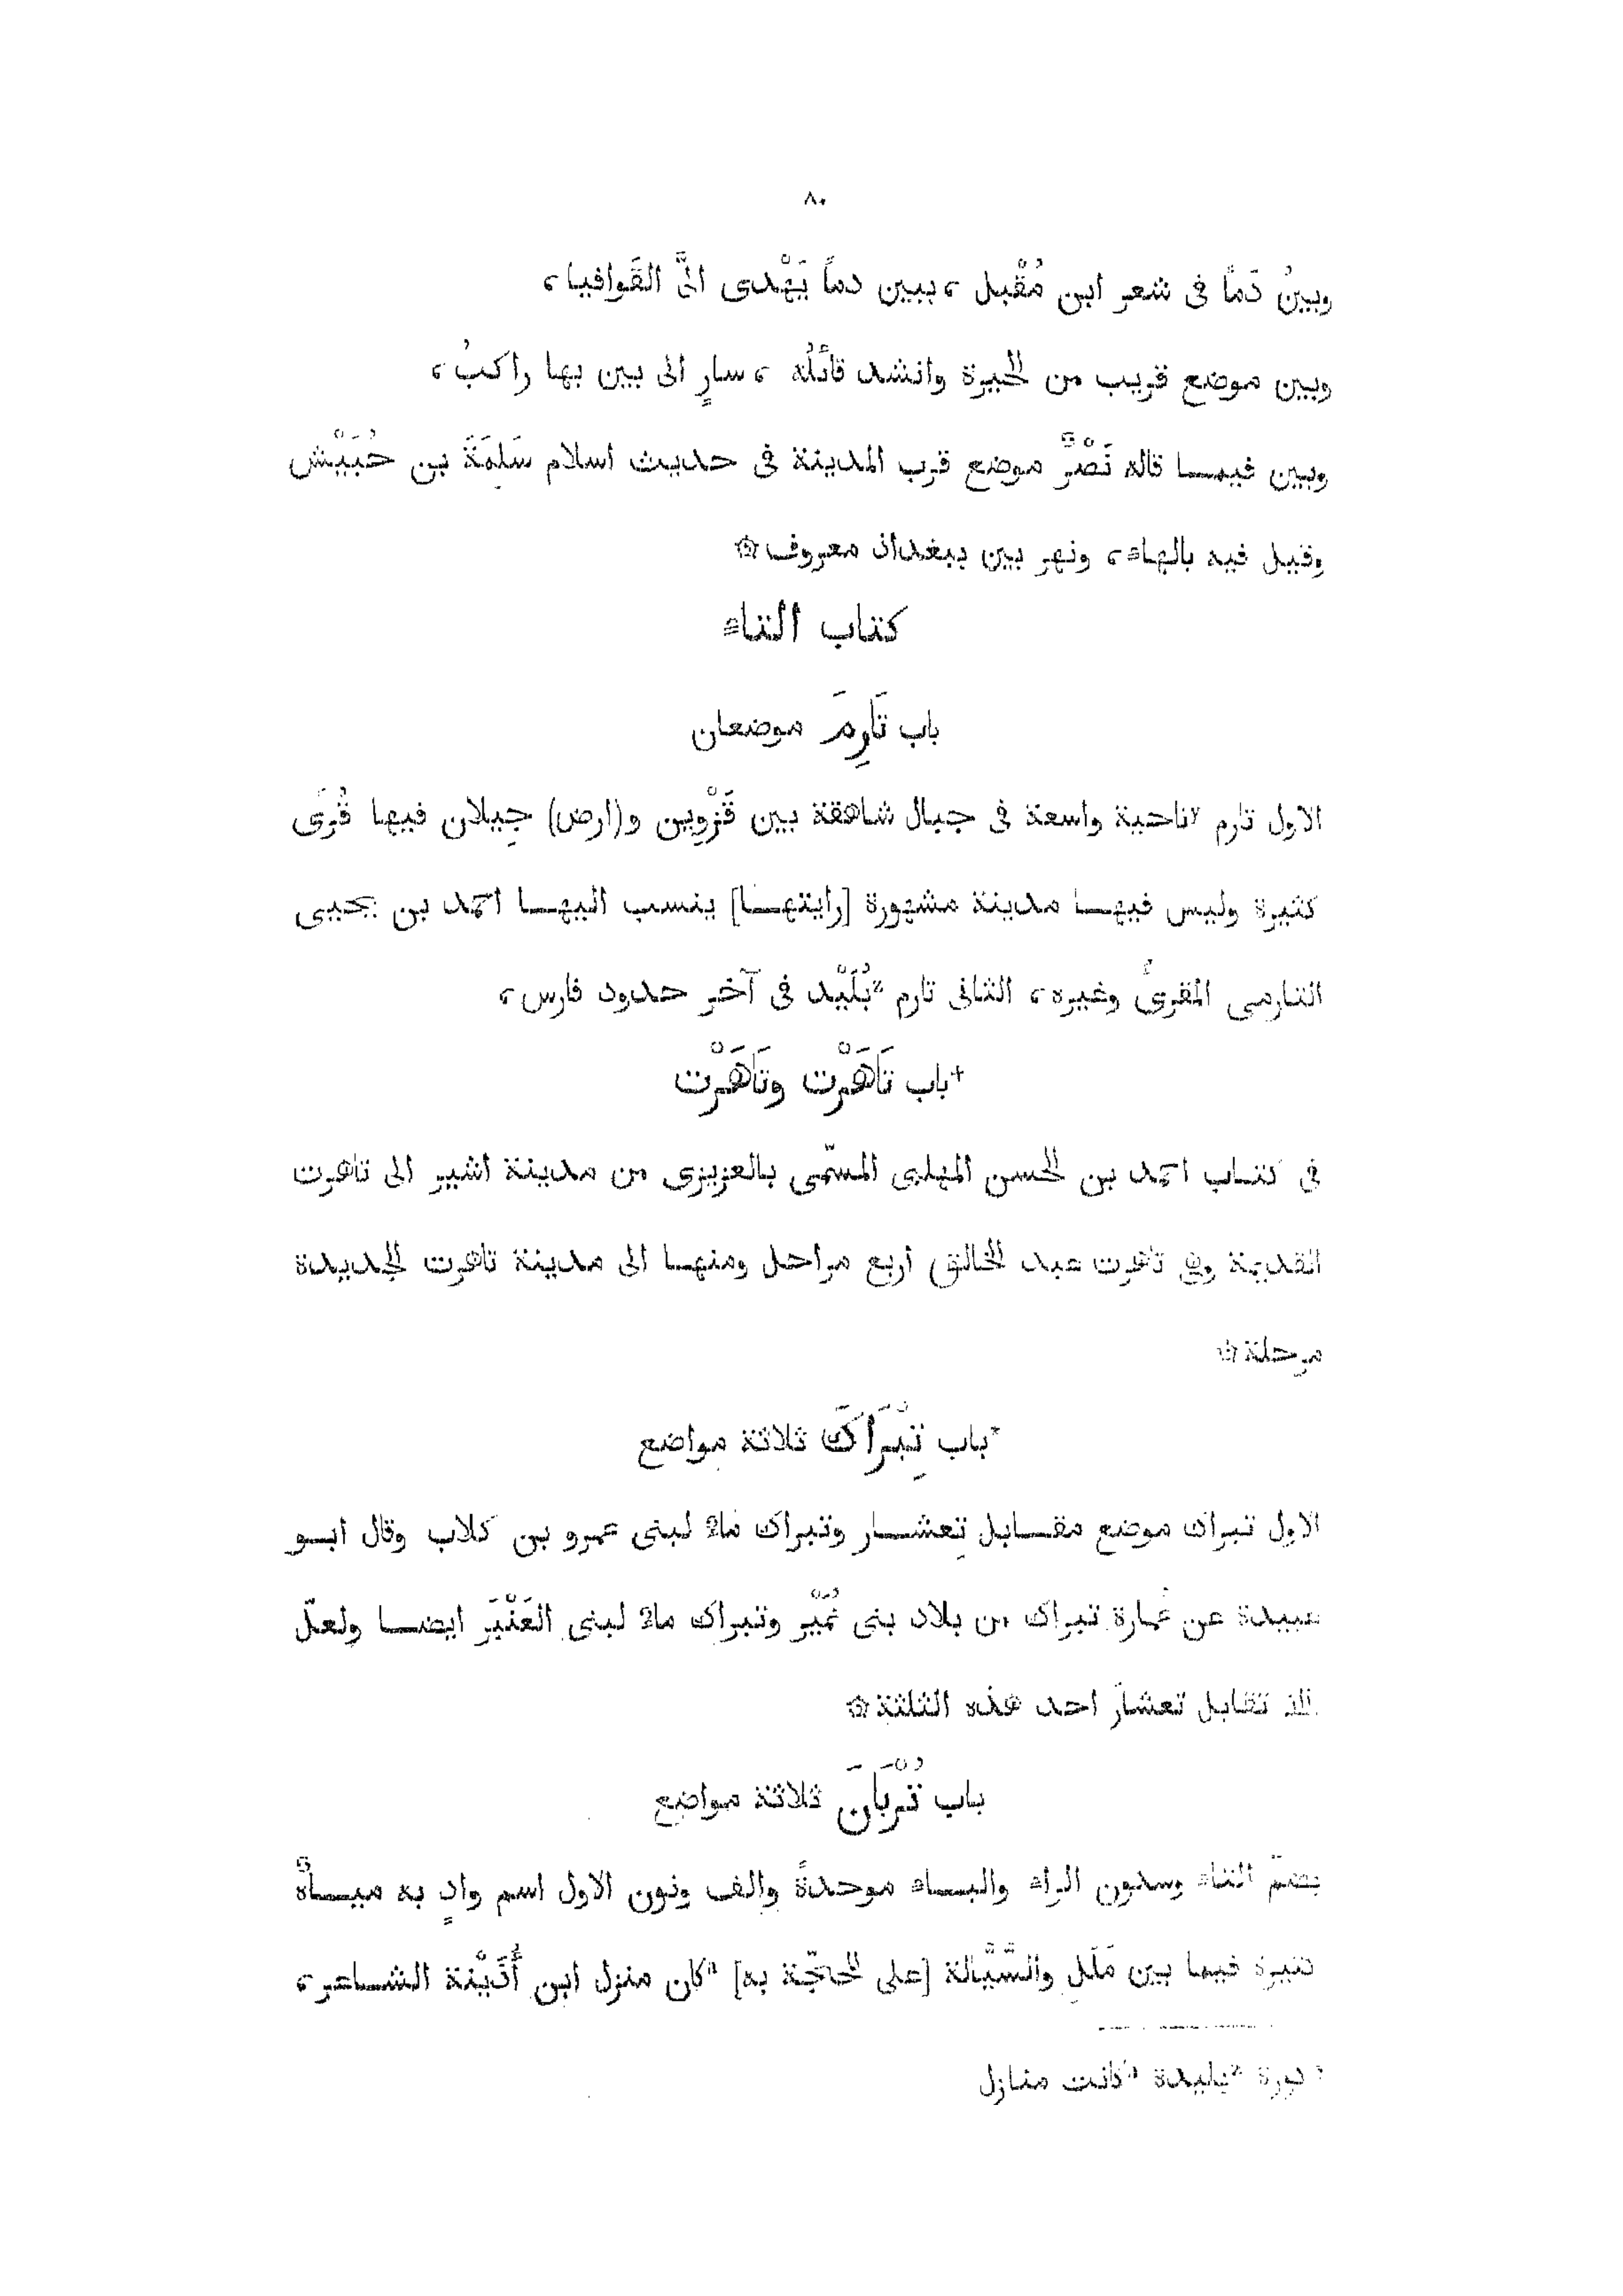 ٨٠
وبينُ دَمًا فى شعر ابن مُقْبل ، ببين دماً يَهْدى الىَّ القَوافيا ،
وبين موضع قريب من الحيرة وانشد قائلُه ، سارٍ الى بين بها راكبُ ،
وبين فيهــا قاله نَصْرٌ موضع قرب المدينة فى حديث اسلام سَلِمَةَ بن حُبَيْش
وقيل فيه بالهاء ، ونهر بين ببغداد معروف ۞
كتاب التاء
باب تَارِمَ موضعان
الاول تارم ¹ناحية واسعة فى جبال شاهقة بين قَزْوين و(ارض) جِيلان فيها قُرًى
كثيرة وليس فيهــا مدينة مشهورة [رايتهــا] ينسب اليهــا احمد بن يحيى
التارمى المقرئُ وغيره ، الثانى تارم ²بُلَيْد فى آخر حدود فارس ،
+باب تَاهَرْت وتَاهَرْت
فى كتــاب احمد بن الحسن المهلبى المسمّى بالعزيزى من مدينة اشير الى تاهرت
القديمة وهى تاهرت عبد الخالق أربع مراحل ومنهــا الى مدينة تاهرت الجديدة
مرحلة ۞
*باب تِبْرَاكَ ثلاثة مواضع
الاول تبراك موضع مقــابل تِعشــار وتبراك ماء لبنى عمرو بن كلاب وقال ابــو
عبيدة عن عُمارة تبراك من بلاد بنى نُمَيْر وتبراك ماء لبنى العَنْبَر ايضــا ولعلّ
تقابل تعشار احد هذه الثلثة ۞
باب تُرْبَانَ ثلاثة مواضع
بضمّ التاء وسكون الراء والبــاء موحدةً والف ونون الاول اسم وادٍ به ميــاهٌ
كثيرة فيما بين مَلَلِ والسَّيَّالة [على المحجّة به] ³كان منزل ابن أُذَيْنة الشــاعر ،
¹كورة ²بليدة ³كانت منازل